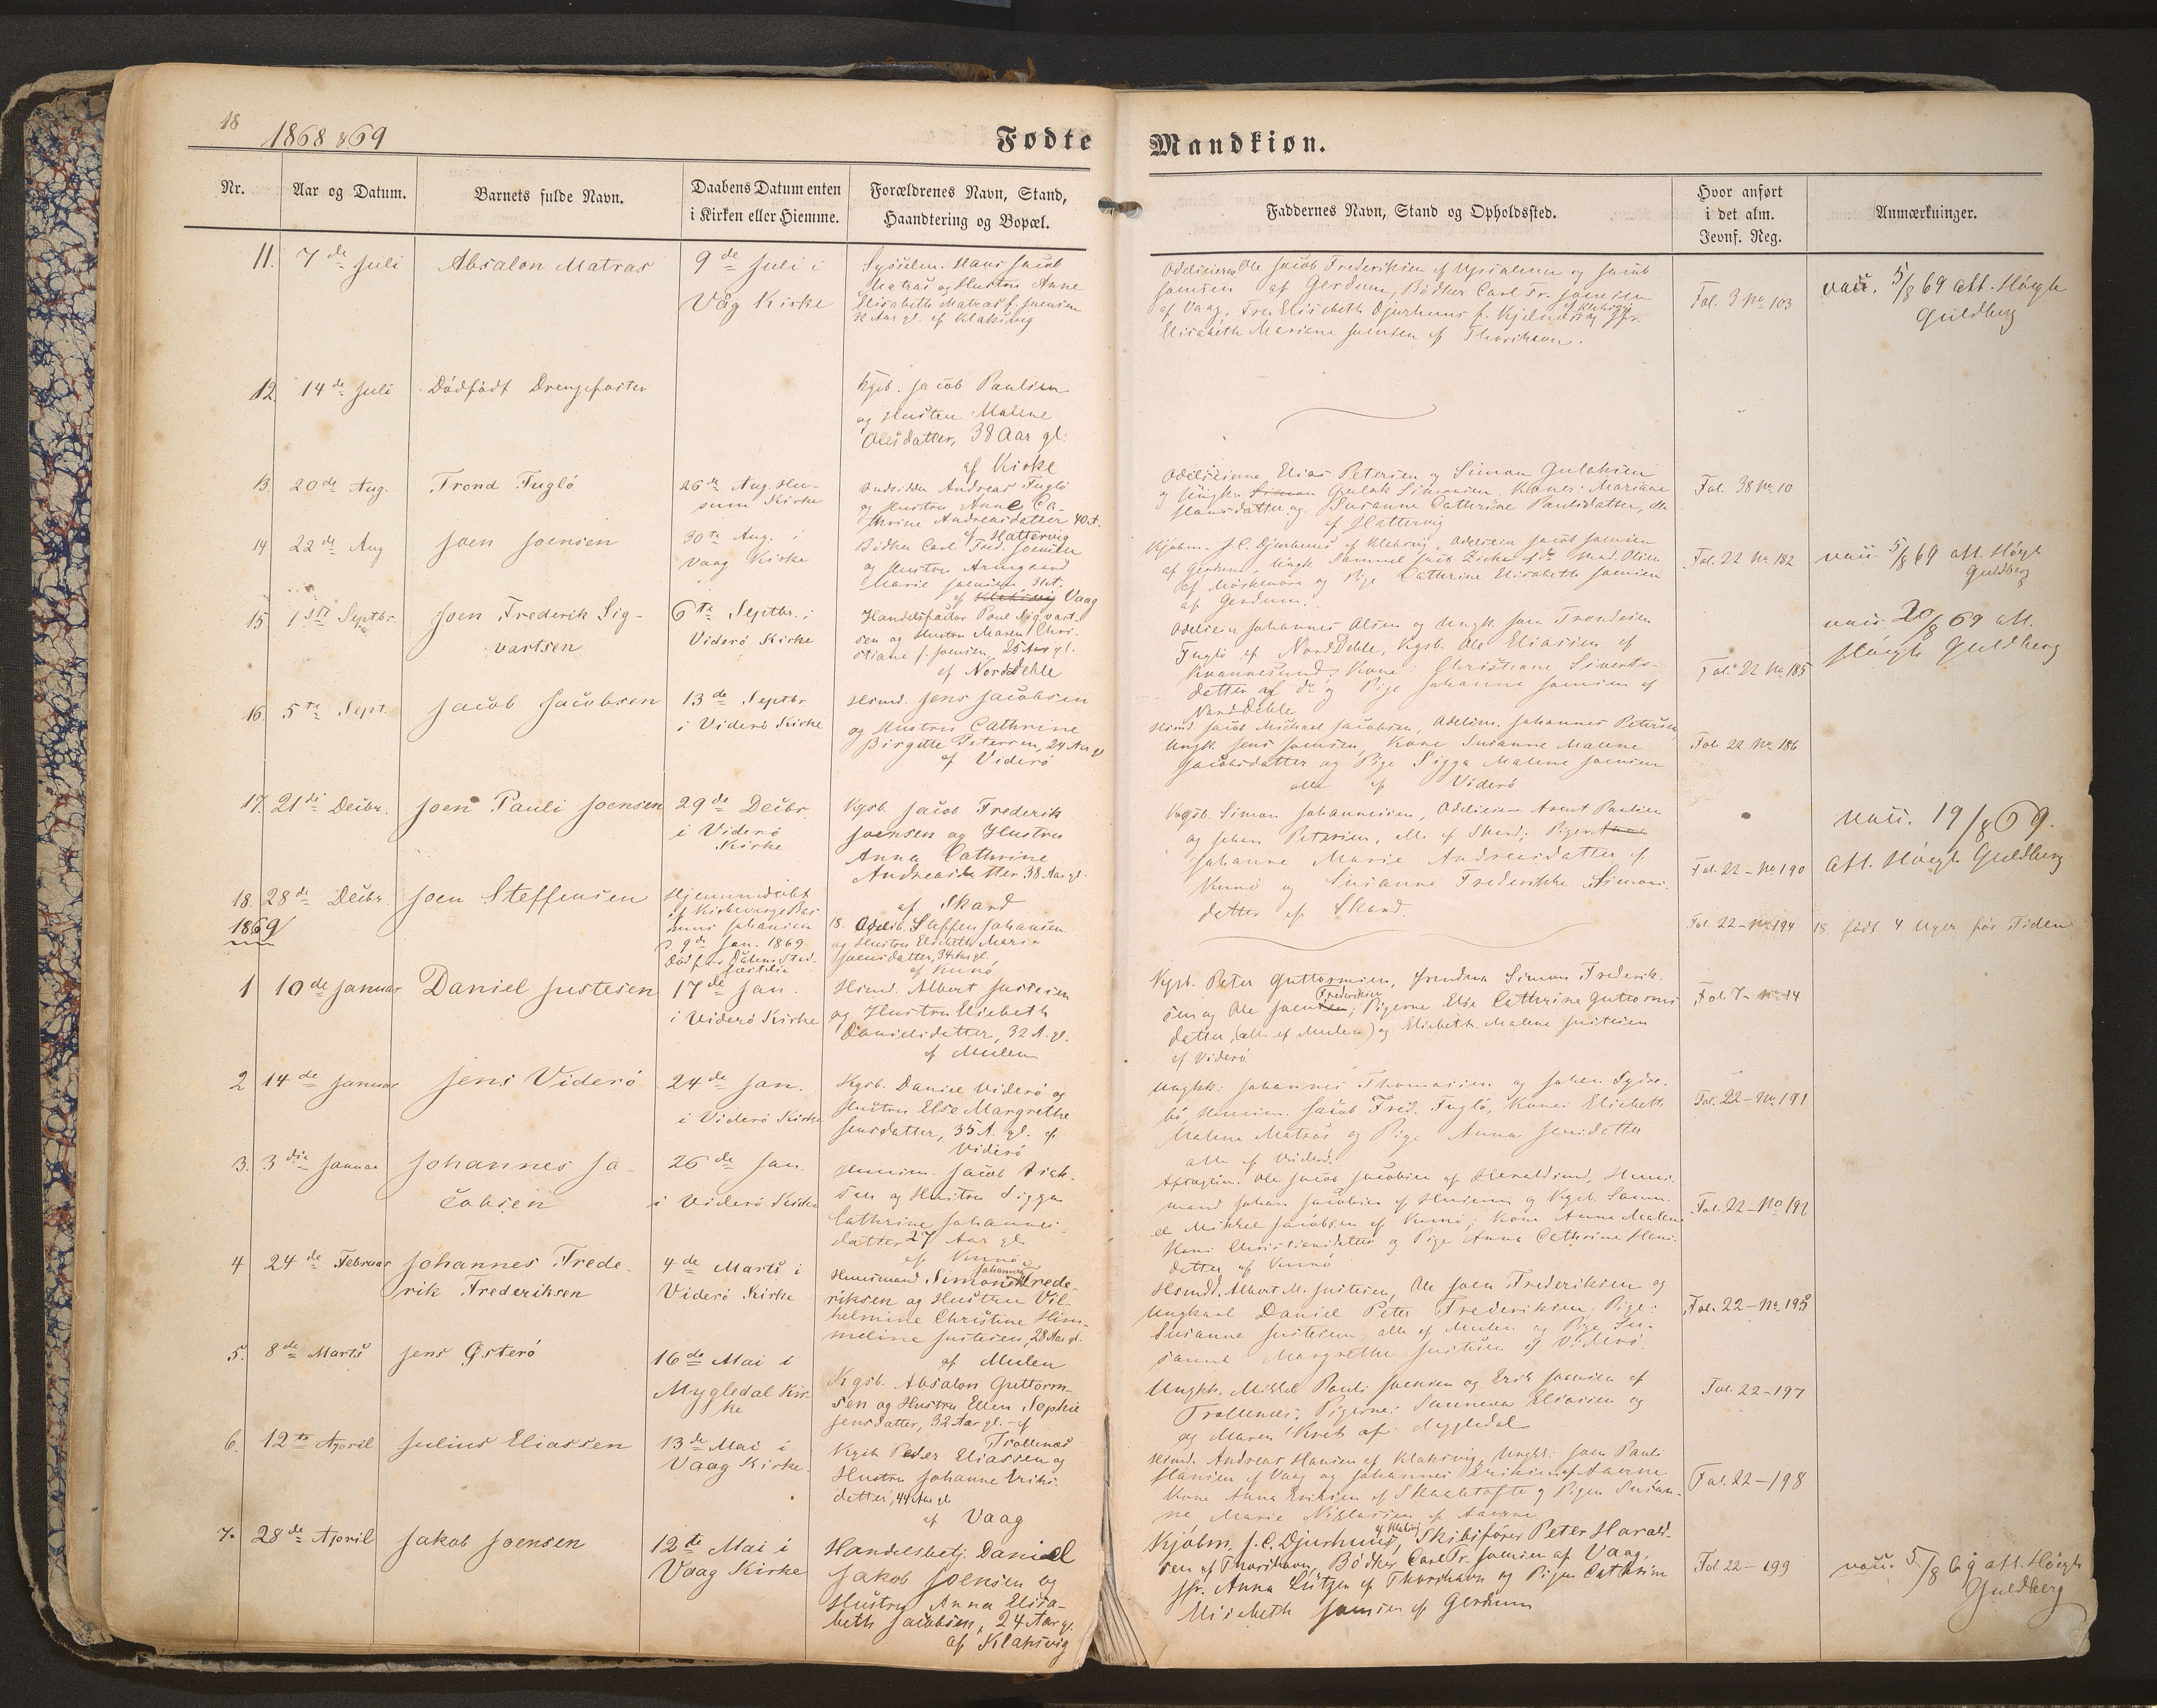 18
1868 & 69
Fødte
Mandkiøn.
Nr.
Aar og Datum.
Barnets fulde Navn.
Daabens Datum enten
i Kirken eller Hiemme.
Forældrenes Navn, Stand,
Haandtering og Bopæl.
Faddernes Navn, Stand og Opholdssted.
Hvor anført
i det alm.
Jevnf. Reg.
Anmærkninger.
11. 7de Juli
Absalon Matras
9de Juli i
Våg Kirke
Sysselm. Hans Jacob
Matras og Hustru Anne
Elisabeth Matras f. Joensen
Aar gl. af Klaksvig
Ole Jacob Frederiksen af og Jacob
Joensen af Gerdum, Bødker Carl Fr. Joensen
af Vaag, Fru Elisabeth Djurhuus f. af Klaksvig
Elisabeth Mariane Joensen af Thorshavn.
Fol. 3 No 103
vacc. 5/8 69 att. Høegh
Guldberg
12. 14de Juli
Dødfødt Drengefoster
Kgsb. Jacob Paulsen
og Hustru Malene
Olesdatter, 38 Aar gl.
af Kirke
13. 20de Aug.
Trond Fuglö
26de Aug. Hu-
sum Kirke
Andreas Fuglö
og Hustru Anne Ca-
thrine Andreasdatter 40 A.
af Hattervig
Elias Petersen og Simon Gulaksen
og Ungk. Simon Gulak Simonsen, Koner: Mariane
Hansdatter og Susanne Cathrine Paulsdatter, alle
af Hattervig
Fol. 38 No 10
14 22de Aug
Joen Joensen
30te Aug. i
Vaag Kirke
Bödker Carl Fred. Joensen
og Hustru Armgaard
Marie Joensen
af Klaksvig Vaag
Kjöbm. J. C. Djurhuus af Klaksvig, Jacob Joensen
af Gerdum, Ungk. Samuel
af og Pige Cathrine Elisabeth Joensen
af Gerdum.
Fol. 22 No 182
vacc. 5/8 69 att. Høegh
Guldberg
15 1ste Septbr.
Joen Frederik Sig-
vartsen
6te Septbr. i
Viderö Kirke
Handelsfactor Poul Sigvart-
sen og Hustru Maren Chri-
stiane f. Joensen, 25 Aar gl.
af NordDeble
Johannes Olsen og Ungk. Joen Trondsen
Fuglö af NordDeble, Kgsb. Ole Eliasen af
Qvannesund; Kone: Christiane Siverts-
datter af do og Pige Johanne Joensen af
NordDeble
Fol. 22 No 185
vacc. 20/8 69 att.
Høegh Guldberg
16. 5te Sept.
Jacob Jacobsen
13de Septbr
i Viderö Kirke
Husmd. Jens Jacobsen
og Hustru Cathrine
Birgitte Petersen, 24 Aar gl
af Viderö
Husmd Jacob Michael Jacobsen, Johannes Petersen
Ungk. Jens Joensen, Kone Susanne Malene
Jacobsdatter og Pige Sigga Malene Joensen
alle af Viderö
Fol. 22 No 186
17. 21de Decbr.
Joen Pauli Joensen
29de Decbr.
i Viderö
Kirke
Kgsb. Jacob Frederik
Joensen og Hustru
Anna Cathrine
Andreasdatter 38 Aar gl.
af Skard
Kgsb. Simon Johannesen, Poulsen
og Johan Petersen, alle af Skard; Pigen
Johanne Marie Andreasdatter af
Kunö og Susanne Frederikke Simons-
datter af Skard.
Fol. 22 - No 190
vacc. 19/8 69.
att. Høegh Guldberg
18. 28de Decbr.
Joen Steffensen
Hjemmedöbt
af Kirkeværge Ras-
mus Johansen
d. 9de Jan. 1869
Död för Daabens Stad-
fæstelse
18. Odelsb. Steffen Johansen
og Hustru Elisabeth Marie
Joensdatter, 34 Aar gl.
af Kunö
Fol. 22 - No 194
18 født 4 Uger før Tiden
1869
1 10de Januar
Daniel Justesen
17de Jan.
i Viderö Kirke
Husmd. Albert Justesen
og Hustru Elisbeth
Danielsdatter, 32 A. gl.
af Mulen
Kgsb. Peter Guttormsen, Simon Frederik-
sen og Ole Joensen Frederiksen; Pigerne Else Cathrine Guttorms-
datter, (alle af Mulen) og Elisabeth Malene Justesen
af Viderö
Fol. 7 - No 14
2 14de Januar
Jens Viderö
24de Jan.
i Viderö Kirke
Kgsb. Daniel Viderö og
Hustru Else Margrethe
Jensdatter, 35 A. gl. af
Viderö
Ungkk: Johannes Thomasen og Johan Sydre-
bö, Husm. Jacob Fred. Fuglö, Kone: Elisabeth
Malene Matras og Pige Anna Jensdatter
alle af Viderö.
Fol. 22 - No 191
3. 3die Januar
Johannes Ja-
cobsen
26de Jan.
i Viderö Kirke
Husm. Jacob Isak-
sen og Hustru Sigga
Cathrine Johannes-
datter 27 Aar gl.
af Kunö
Ole Jacob Jacobsen af Haraldsund, Huus-
mand Johan Jacobsen af Husum og Kgsb. Samu-
el Mikkel Jacobsen af Kunö; Kone Anna Malene
Hans Christiansdatter og Pige Anna Cathrine Hans-
datter af Kunö
Fol. 22 - No 192
4 24de Februar
Johannes Frede-
rik Frederiksen
4de Marts i
Viderö Kirke
Huusmand Simon Johannes Frede-
riksen og Hustru Vil-
helmine Christine Him-
meline Justesen, 28 Aar gl.
af Mulen
Husmd. Albert M. Justesen, Ole Joen Frederiksen og
Ungkarl Daniel Peter Frederiksen; Pige:
Susanne Justesen alle af Mulen og Pige Su-
sanne Margrethe Justesen af Viderö.
Fol. 22 - No 195
5. 8de Marts
Jens Østerö
16de Mai i
Mygledal Kir-
ke
Kgsb. Absalon Guttorm-
sen og Hustru Ellen Sophie
Jensdatter, 32 Aar gl. - af
Trollenæs
Ungkk. Mikkel Pauli Joensen og Erik Joensen af
Trollenæs; Pigerne: Sunneva Eliasen og
og Maren Kvit af Mygledal
Fol. 22 - 197
6. 12te April
Julius Eliassen
13de Mai i
Vaag Kirke.
Kgsb Peder Eliassen og
Hustru Johanne Eriks-
datter, 44 Aar gl
af Vaag
Husmd. Andreas Hansen af Klaksvig, Ungkk: Joen Pauli
Hansen af Vaag og Johannes Eriksen af Aarne.
Kone Anna Eriksen af Skaaletofte og Pigen Susan-
ne Marie Niclassen af Aarne
Fol. 22 - 198
7. 28de April
Jakob Joensen
12te Mai i
Vaag Kirke
Handelsbetj. Daniel
Jakob Joensen og
Hustru Anna Elisa-
beth Jacobsen, 24 Aar gl.
af Klaksvig
Kjöbm. J. C. Djurhuus, af Klaksvig Skibsförer Peter Harald-
sen af Thorshavn, Bödker Carl Fr. Joensen af Vaag,
Jfr. Anna Lützen af Thorshavn og Pigen Cathrine
Elisabeth Joensen af Gerdum
Fol 22 - 199
vacc. 5/8 69 att. Høegh
Guldberg